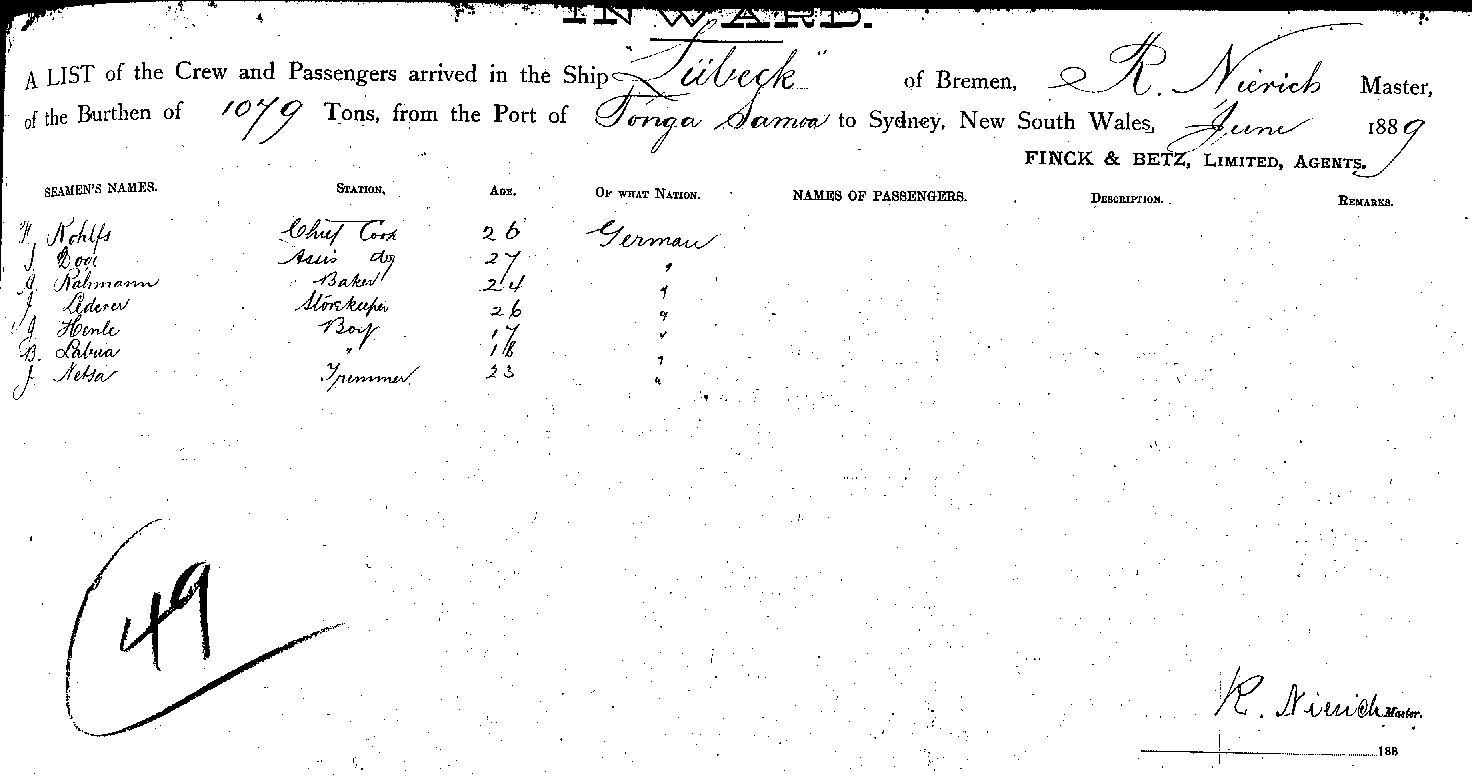 INWARD.
A LIST of the Crew and Passengers arrived in the Ship "Lübeck" of Bremen, R. Nierich Master,
of the Burthen of 1079 Tons, from the Port of Tonga Samoa to Sydney, New South Wales, June 1889
FINCK & BETZ, LIMITED, AGENTS.
SEAMEN'S NAMES. STATION. AGE. OF WHAT NATION. NAMES OF PASSENGERS. DESCRIPTION. REMARKS.
H. Nohlfs Chief Cook 26 German
J. Assis do 27 "
J. Rahmann Baker 24 "
J. Lederer Storekeeper 26 "
J. Henle Boy 17 "
B. Labua " 18 "
J. Netsa Tremmer 23 "
49
R. Nierich Master.
188